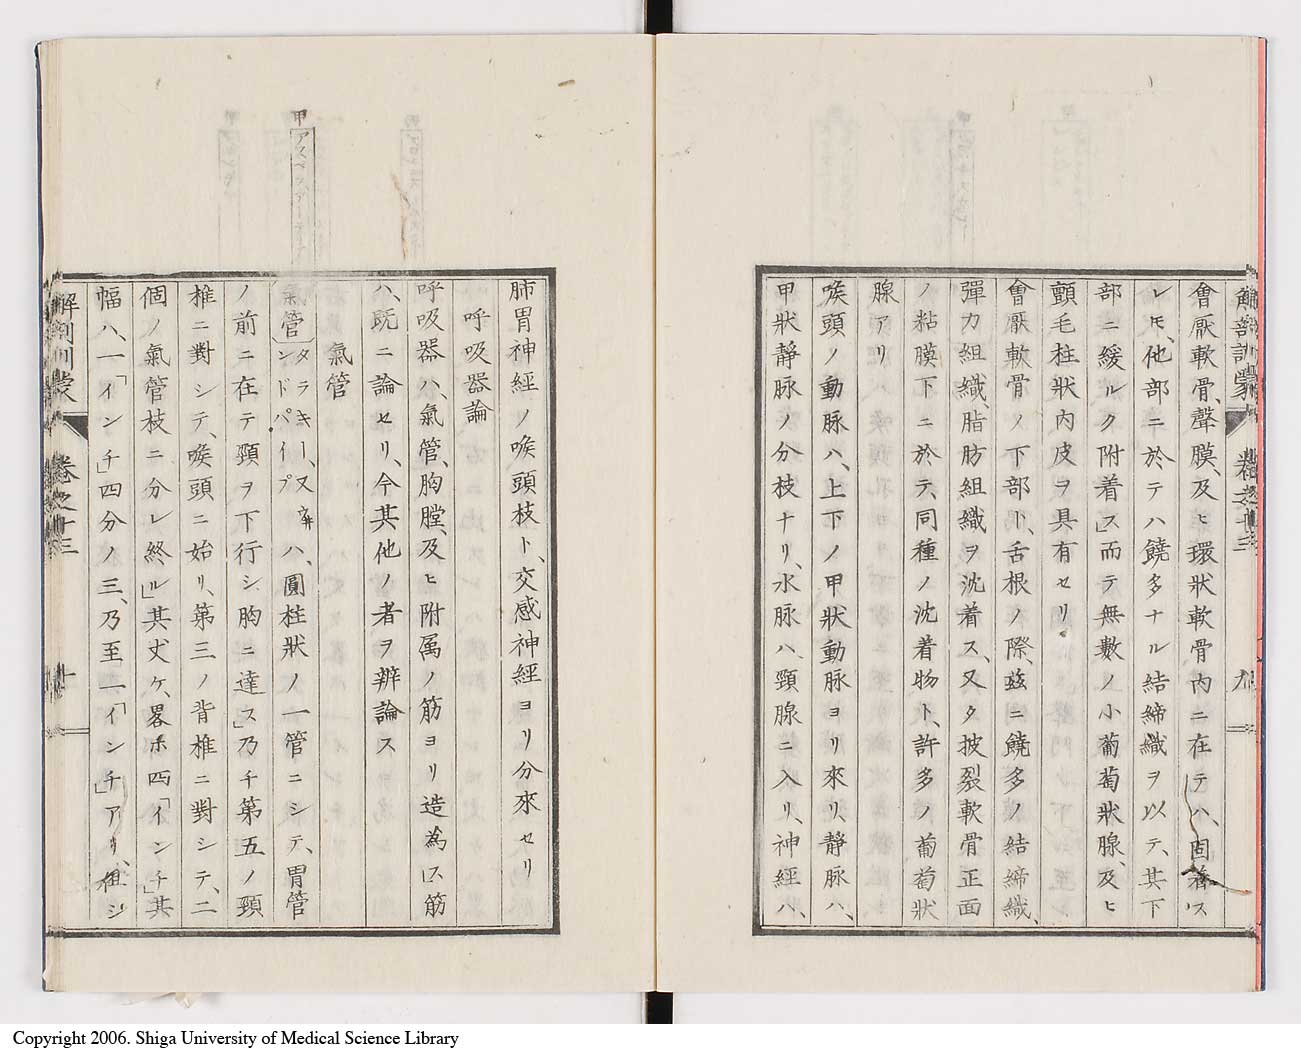 解剖訓蒙 卷之十三 九
會厭軟骨、聲膜、及ヒ環狀軟骨内ニ在テハ、固着ス
レ𪜈、他部ニ於テハ饒多ナル結締織ヲ以テ、其下
部ニ緩ルク附着ス」而テ無數ノ小葡萄狀腺、及ヒ
顫毛柱狀内皮ヲ具有セリ
會厭軟骨ノ下部ト、舌根ノ際、玆ニ饒多ノ結締織、
彈力組織、脂肪組織ヲ沈着ス、又タ披裂軟骨正面
ノ粘膜下ニ於テ、同種ノ沈着物ト、許多ノ葡萄狀
腺アリ
喉頭ノ動脉ハ、上下ノ甲狀動脉ヨリ來リ、靜脉ハ、
甲狀靜脉ノ分枝ナリ、水脉ハ、頸腺ニ入リ、神經ハ、
肺胃神經ノ喉頭枝ト、交感神經ヨリ分來セリ
呼吸器論
呼吸器ハ、氣管、胸膛、及ヒ附属ノ筋ヨリ造為ス筋
ハ、既ニ論セリ、今其他ノ者ヲ辨論ス
氣管
氣管〔タラキー、又ンドパイプ〕ハ、圓柱狀ノ一管ニシテ、胃管
ノ前ニ在テ頸ヲ下行シ胸ニ達ス」乃チ第五ノ頸
椎ニ對シテ、喉頭ニ始リ、第三ノ背椎ニ對シテ、二
個ノ氣管枝ニ分レ終ル」其丈ケ、畧ホ四「インチ」其
幅ハ、一「インチ」四分ノ三、乃至一「インチ」アリ、
解剖訓蒙 卷之十三 十
甲
アスペラアーテ